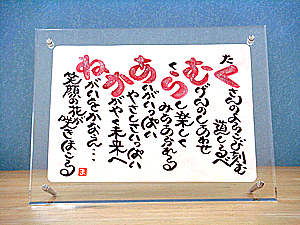 たくさんのよろこび刻む
道しるべ
むげんのしあわせ
みちあふれる
くらし楽しく
あいがいっぱい
やさしさいっぱい
かがやく未来へ
ねがいをかなえ…
笑顔の花が咲きほこる